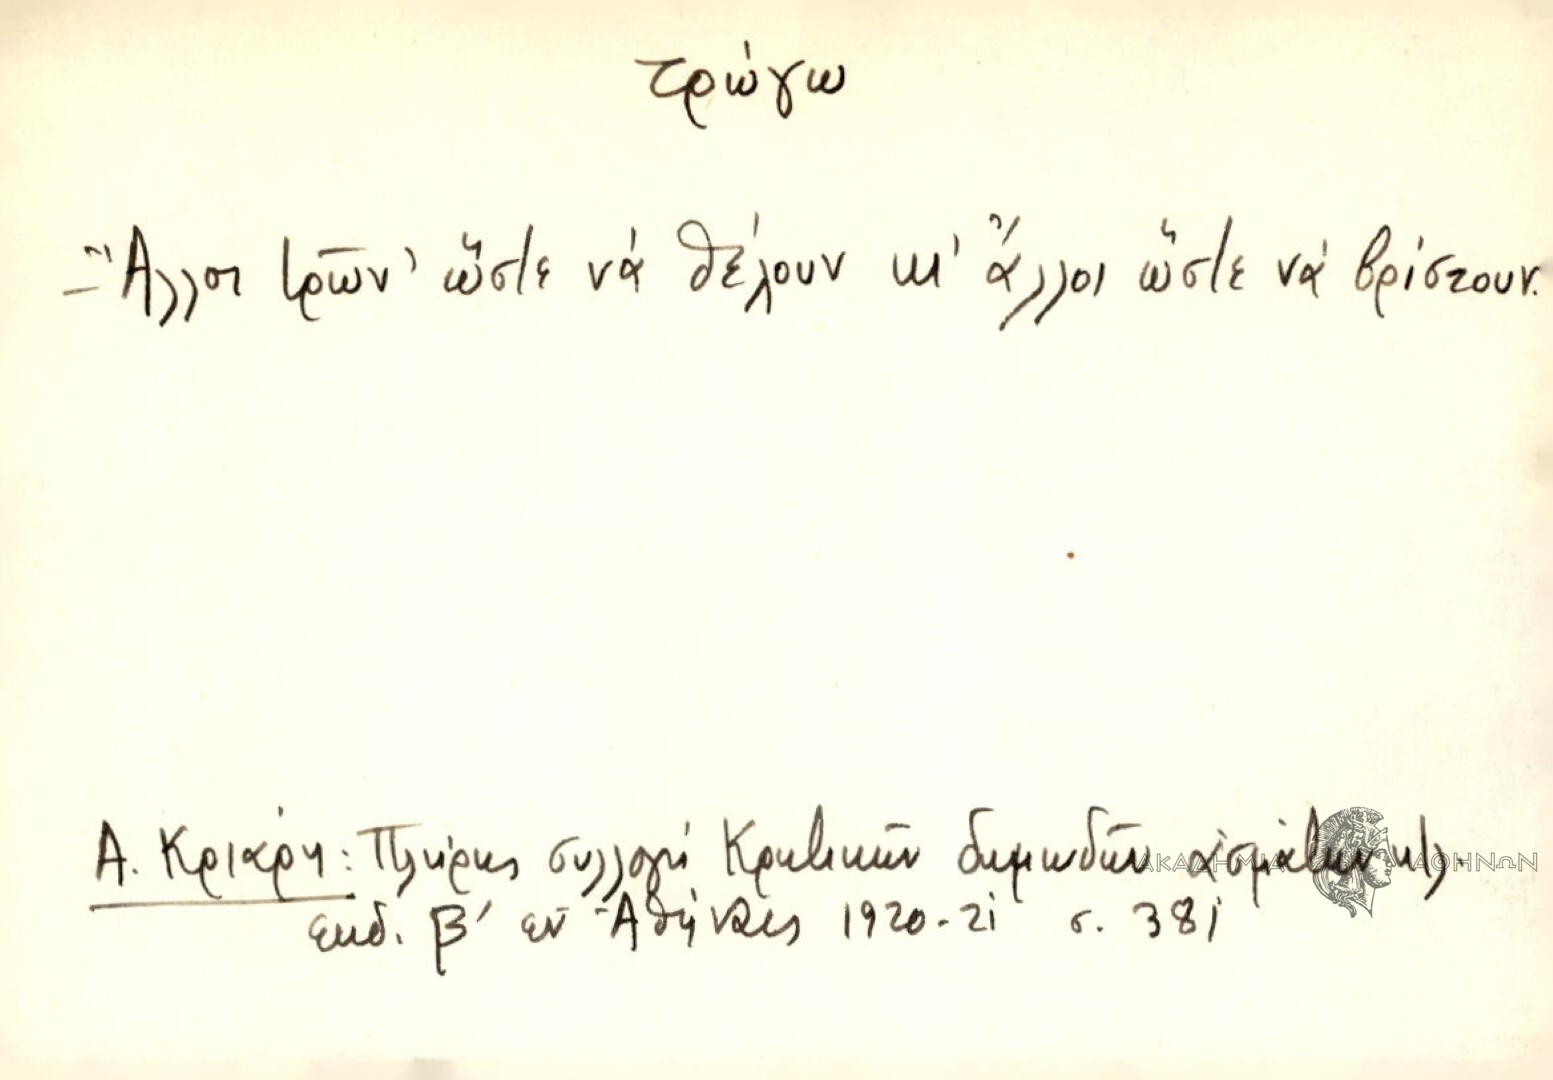 τρώγω
- Ἄλλοι τρῶν' ὥστε νά θέλουν κι' ἄλλοι ὥστε νά βρίστουν.
Α. Κριάρη: Πλήρης συλλογή Κρητικῶν δημωδῶν ᾀσμάτων κτλ.
ΑΚΑΔΗΜΙΑ ΑΘΗΝΩΝ
ἐκδ. β' ἐν Ἀθήναις 1920-21 σ. 381